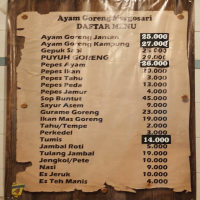 Ayam Goreng Margosari
DAFTAR MENU
Ayam Goreng Jantan 25.000
Ayam Goreng Kampung 27.000
Gepuk Sapi
PUYUH GORENG
Pepes Ayam 26.000
Pepes Ikan
Pepes Tahu 3.000
Pepes Peda 13.000
Pepes Jamur 4.000
Sop Buntut 45.000
Sayur Asem 9.000
Gurame Goreng 23.000
Ikan Mas Goreng 19.000
Tahu/Tempe 2.000
Perkedel 3.000
Tumis 14.000
Jambal Roti 5.000
Tulang Jambal 19.000
Jengkol/Pete 10.000
Nasi 9.000
Es Jeruk 10.000
Es Teh Manis 4.000